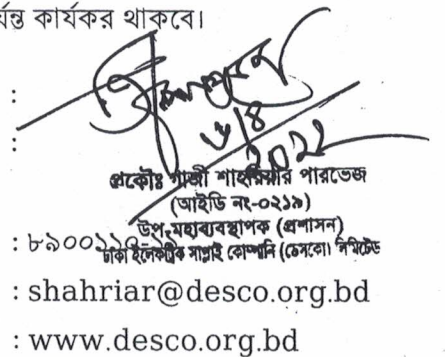 র্যন্ত কার্যকর থাকবে।
:
:
৬/৪
২০২২
প্রকৌঃ গাজী শাহরিয়ার পারভেজ
(আইডি নং-০২১৯)
উপ-মহাব্যবস্থাপক (প্রশাসন)
: ৮৯০০১১০-
ঢাকা ইলেকট্রিক সাপ্লাই কোম্পানি (ডেসকো) লিমিটেড
: shahriar@desco.org.bd
: www.desco.org.bd